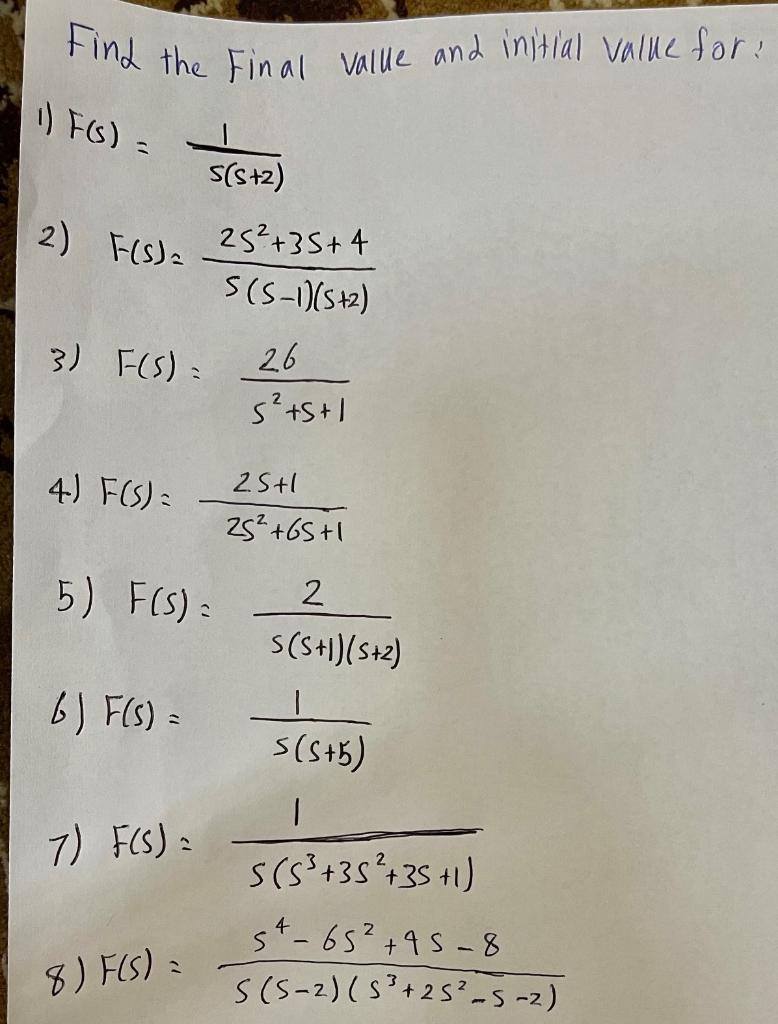 Find the Final value and initial value for:
1) F(s) = 1 / s(s+2)
2) F(s) = 2s²+3s+4 / s(s-1)(s+2)
3) F(s) = 26 / s²+s+1
4) F(s) = 2s+1 / 2s²+6s+1
5) F(s) = 2 / s(s+1)(s+2)
6) F(s) = 1 / s(s+5)
7) F(s) = 1 / s(s³+3s²+3s+1)
8) F(s) = s⁴-6s²+9s-8 / s(s-2)(s³+2s²-s-2)